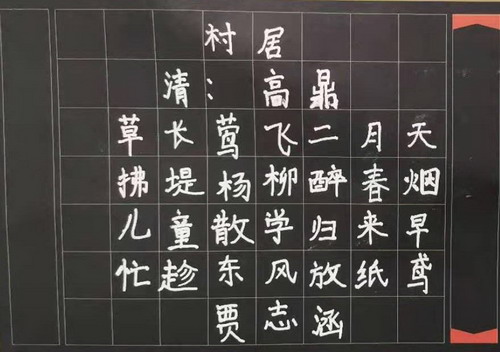 村居
清：高鼎
草长莺飞二月天
拂堤杨柳醉春烟
儿童散学归来早
忙趁东风放纸鸢
贾志涵